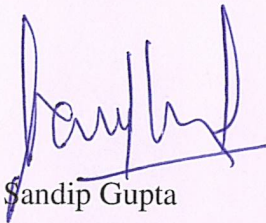 Sandip Gupta